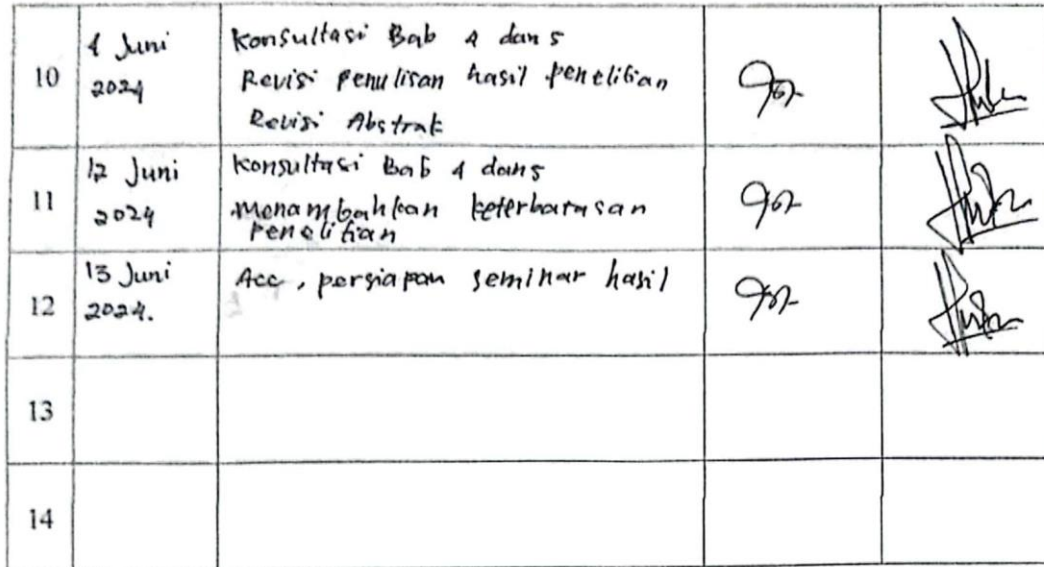 10
4 Juni
2024
Konsultasi Bab 4 dan 5
Revisi penulisan hasil penelitian
Revisi Abstrak
11
12 Juni
2024
Konsultasi Bab 4 dan 5
Menambahkan keterbatasan
penelitian
12
13 Juni
2024.
Acc, persiapan seminar hasil
13
14